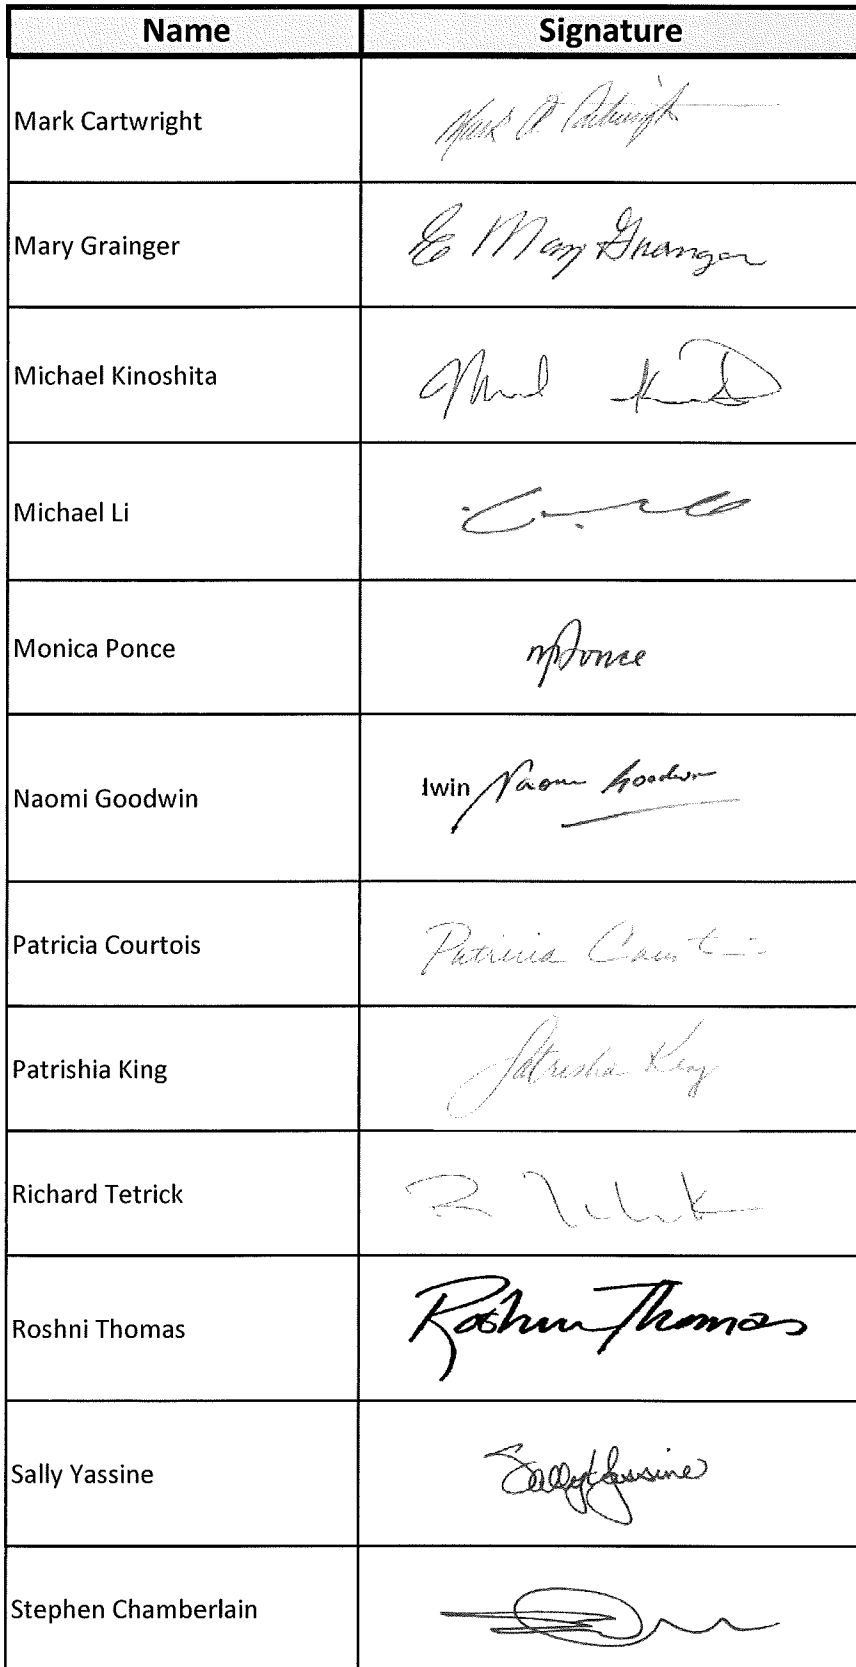 Name Signature
Mark Cartwright Mark A. Cartwright
Mary Grainger E Mary Grainger
Michael Kinoshita
Michael Li
Monica Ponce MPonce
Naomi Goodwin lwin Naomi Goodwin
Patricia Courtois Patricia
Patrishia King Patrishia King
Richard Tetrick R
Roshni Thomas Roshni Thomas
Sally Yassine Sally Yassine
Stephen Chamberlain